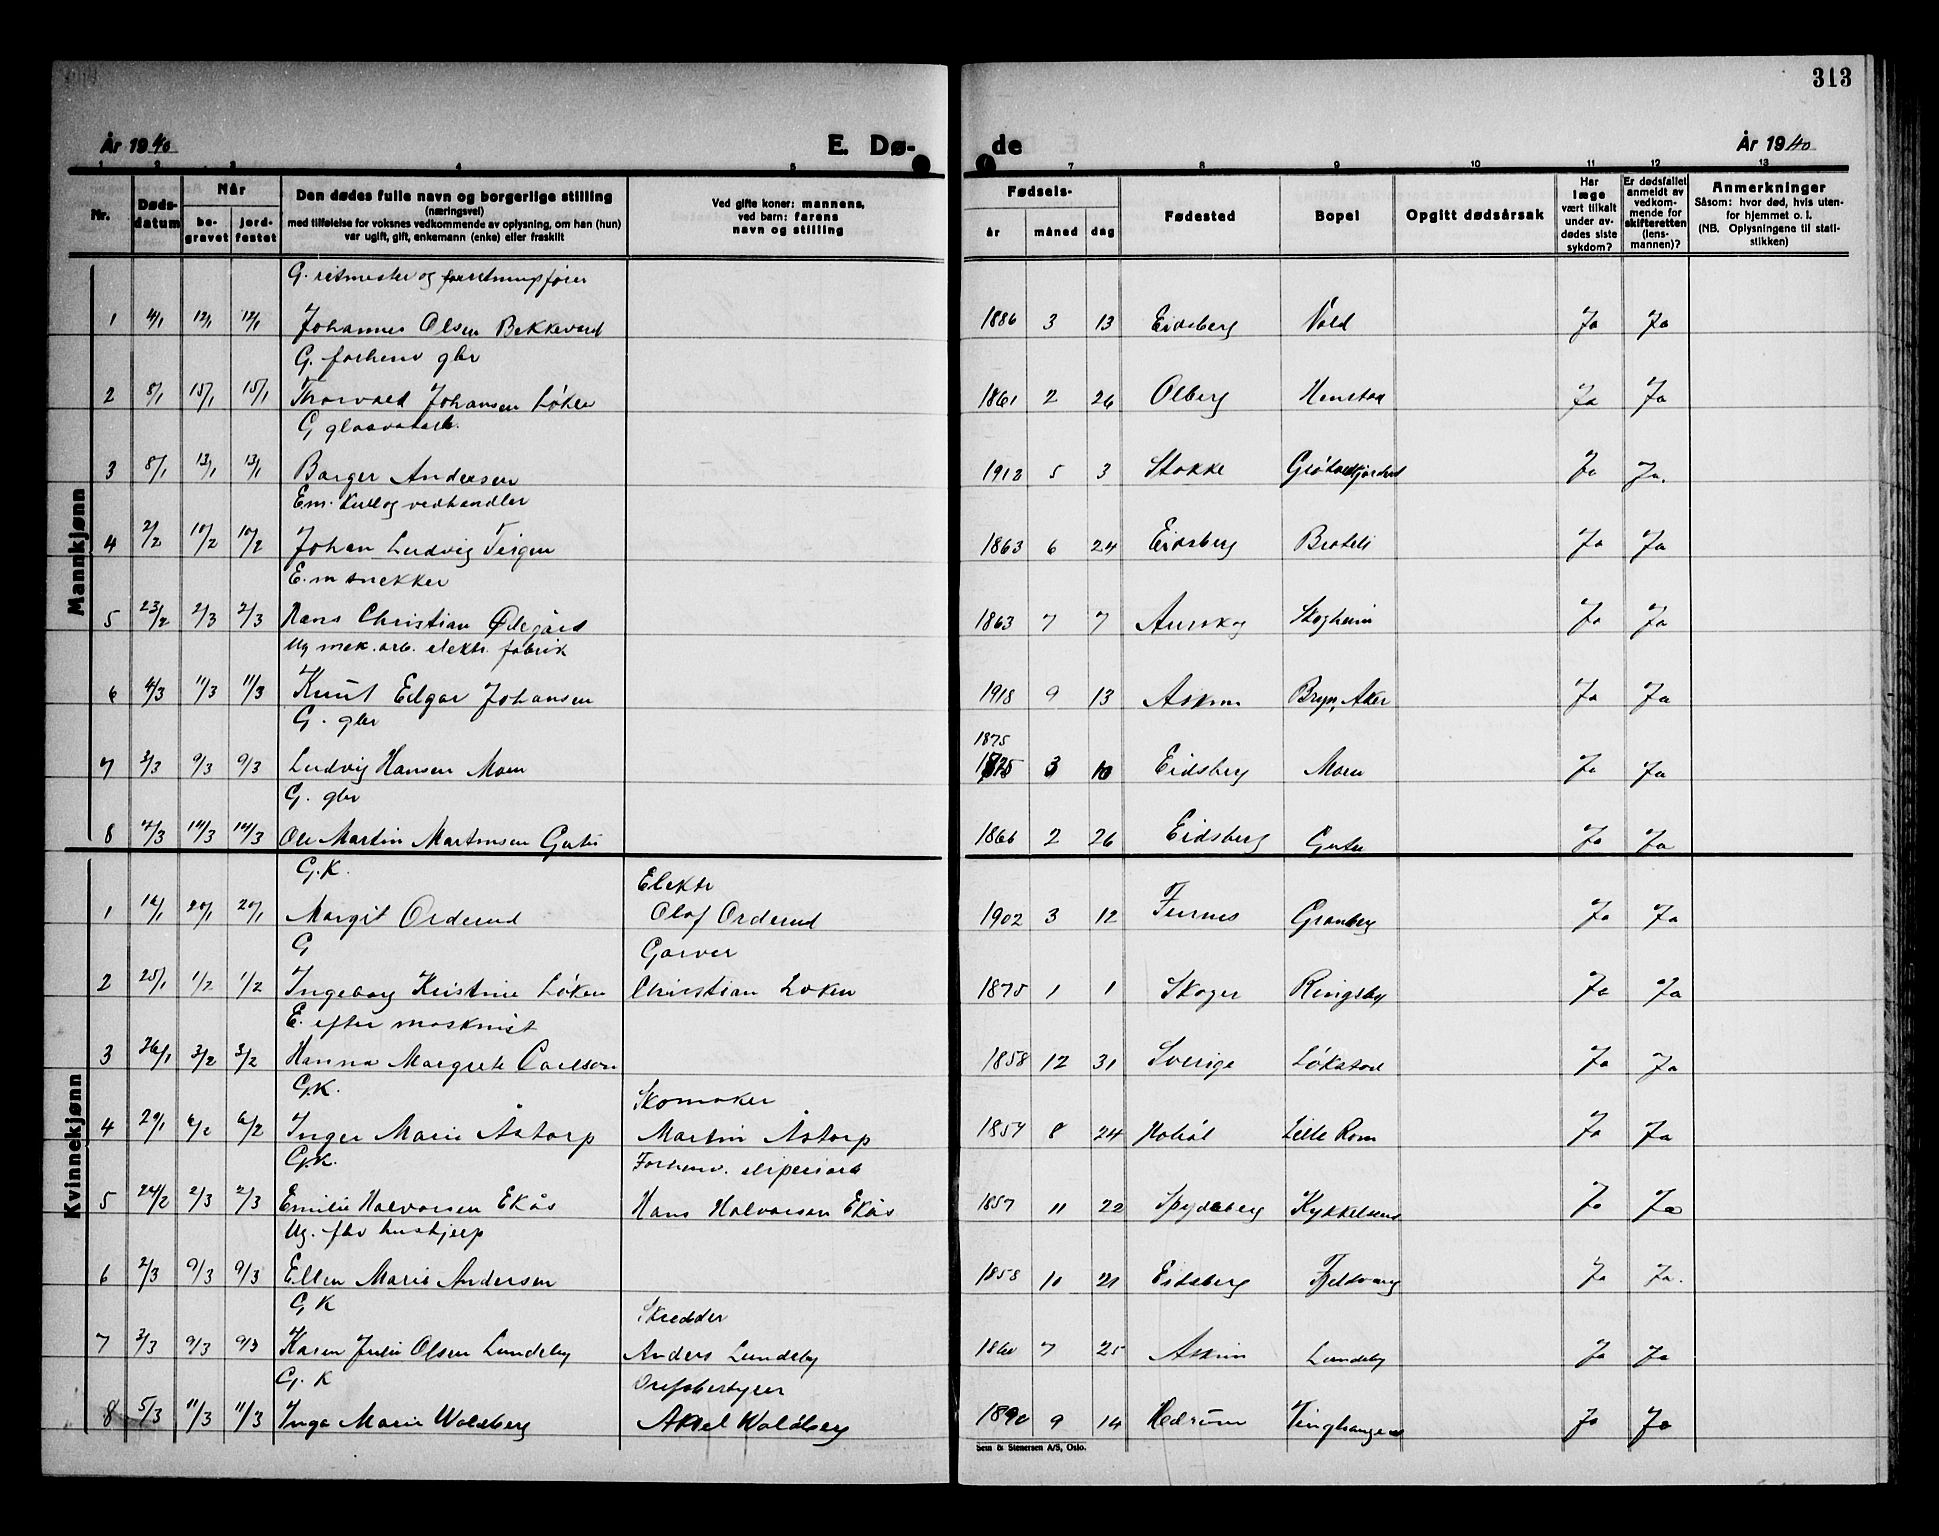 313
År 1940
E. Dø-
de
År 1940
1 2 3 4 5
7 8 9 10 11 12 13
Nr.
Døds-
datum
Når
be-
gravet
jord-
festet
Den dødes fulle navn og borgerlige stilling
(næringsvei)
med tilføielse for voksnes vedkommende av oplysning, om han (hun)
var ugift, gift, enkemann (enke) eller fraskilt
Ved gifte koner: mannens,
ved barn: farens
navn og stilling
Fødsels-
år måned dag
Fødested
Bopel
Opgitt dødsårsak
Har
læge
vært tilkalt
under av-
dødes siste
sykdom?
Er dødsfallet
anmeldt av
vedkom-
mende for
skifteretten
(lens-
mannen)?
Anmerkninger
Såsom: hvor død, hvis uten-
for hjemmet o. l.
(NB. Oplysningene til stati-
stikken)
Mannkjønn
G. ritmester og forretningsfører
1 4/1 12/1 12/1 Johannes Olsen Bekkevard 1886 3 13 Eidsberg Vold Ja Ja
G. forhenv gbr
2 8/1 15/1 15/1 Thorvald Johansen Løken 1861 2 26 Olberg Ja Ja
G
3 8/1 13/1 13/1 Borger Andersen 1912 5 3 Stokke Ja Ja.
Em. Kull og vedhandler
4 2/2 10/2 10/2 Johan Ludvig Teigen 1863 6 24 Eidsberg Bråteli Ja Ja
E.m snekker
5 23/2 2/3 2/3 Hans Christian Ødegård 1863 7 7 Aurskog Skogheim Ja Ja
Ug mek. arb. elektr. fabrik
6 4/3 11/3 11/3 Knut Edgar Johansen 1918 9 13 Askim Bryn, Aker Ja Ja
G. gbr
1875
7 3/3 9/3 9/3 Ludvig Hansen Moen 1875 3 10 Eidsberg Moen Ja Ja
G. gbr
8 7/3 14/3 14/3 Ole Martin Martinsen Guter 1866 2 26 Eidsberg Guter Ja Ja
Kvinnekjønn
G.K. Elektr
1 12/1 20/1 20/1 Margit Orderud Olaf Orderud 1902 3 12 Furnes Granberg Ja Ja
G Garver
2 25/1 1/2 1/2 Ingeborg Kristine Løken Christian Løken 1875 1 1 Skoger Ringsby Ja Ja
E. efter maskinist
3 26/1 3/2 3/2 Hanna Margrete Carlson 1858 12 31 Sverige Løkstad Ja Ja
G.K. Skomaker
4 29/1 6/2 6/2 Inger Marie Åstorp Martin Åstorp 1857 8 24 Hobøl Lille Rom Ja Ja
G.K. Forhenv. sliperiarb
5 24/2 2/3 2/3 Emilie Halvorsen Ekås Hans Halvorsen Ekås 1857 11 22 Spydeberg Kykkelsrud Ja Ja
Ug. fhv hushjelp
6 2/3 9/3 9/3 Ellen Marie Andersen 1858 10 21 Eidsberg Fjeldvang Ja Ja.
G K Skredder
7 3/3 9/3 9/3 Karen Julie Olsen Lundeby Anders Lundeby 1860 7 25 Askim Lundeby Ja Ja
G. K Ovnfabestyrer
8 5/3 11/3 11/3 Inga Marie Waldberg Aksel Waldberg 1890 9 14 Hedrum Ja Ja
Sem & Stenersen A/S, Oslo.